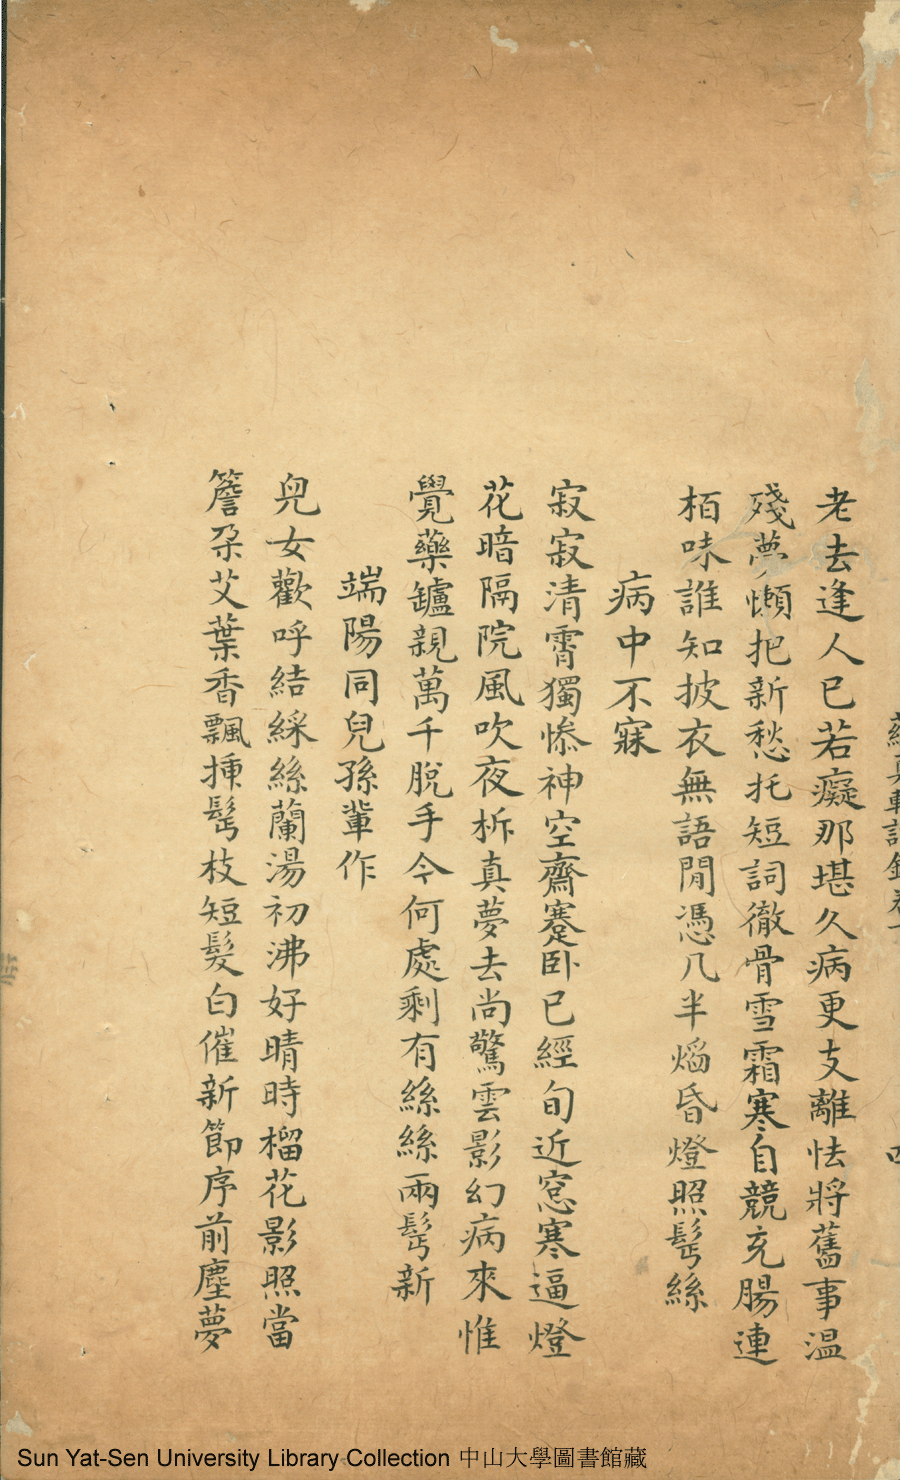 老去逢人已若癡那堪久病更支離怯將舊事温
殘夢懶把新愁托短詞徹骨雪霜寒自競充腸連
栢味誰知披衣無語閒憑几半燄昏燈照髩絲
病中不寐
寂寂清霄獨慘神空齋蹇卧已經旬近窓寒逼燈
花暗隔院風吹夜柝真夢去尚驚雲影幻病來惟
覺藥鑪親萬千脫手今何處剩有絲絲兩髩新
端陽同兒孫輩作
兒女歡呼結綵絲蘭湯初沸好晴時榴花影照當
簷朶艾葉香飄揷髩枝短髮白催新節序前塵夢
Sun Yat-Sen University Library Collection 中山大學圖書館藏